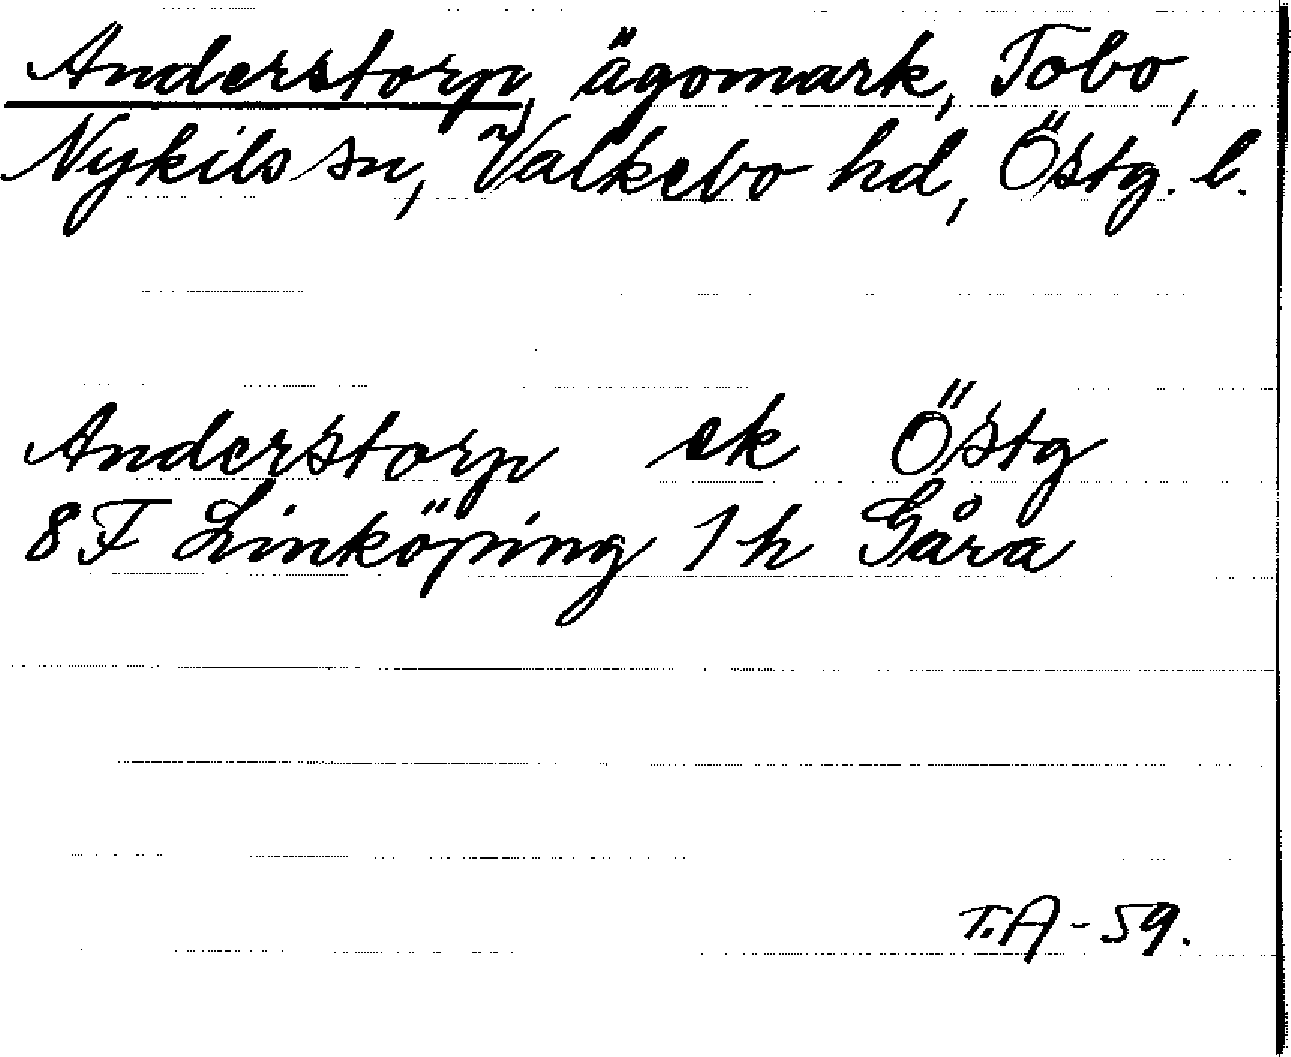 Anderstorp, ägomark, Tobo,
Nykils sn, Valkebo hd, Östg. l.
Anderstorp ek Östg
8F Linköping 1h Gåra
T.A - 59.